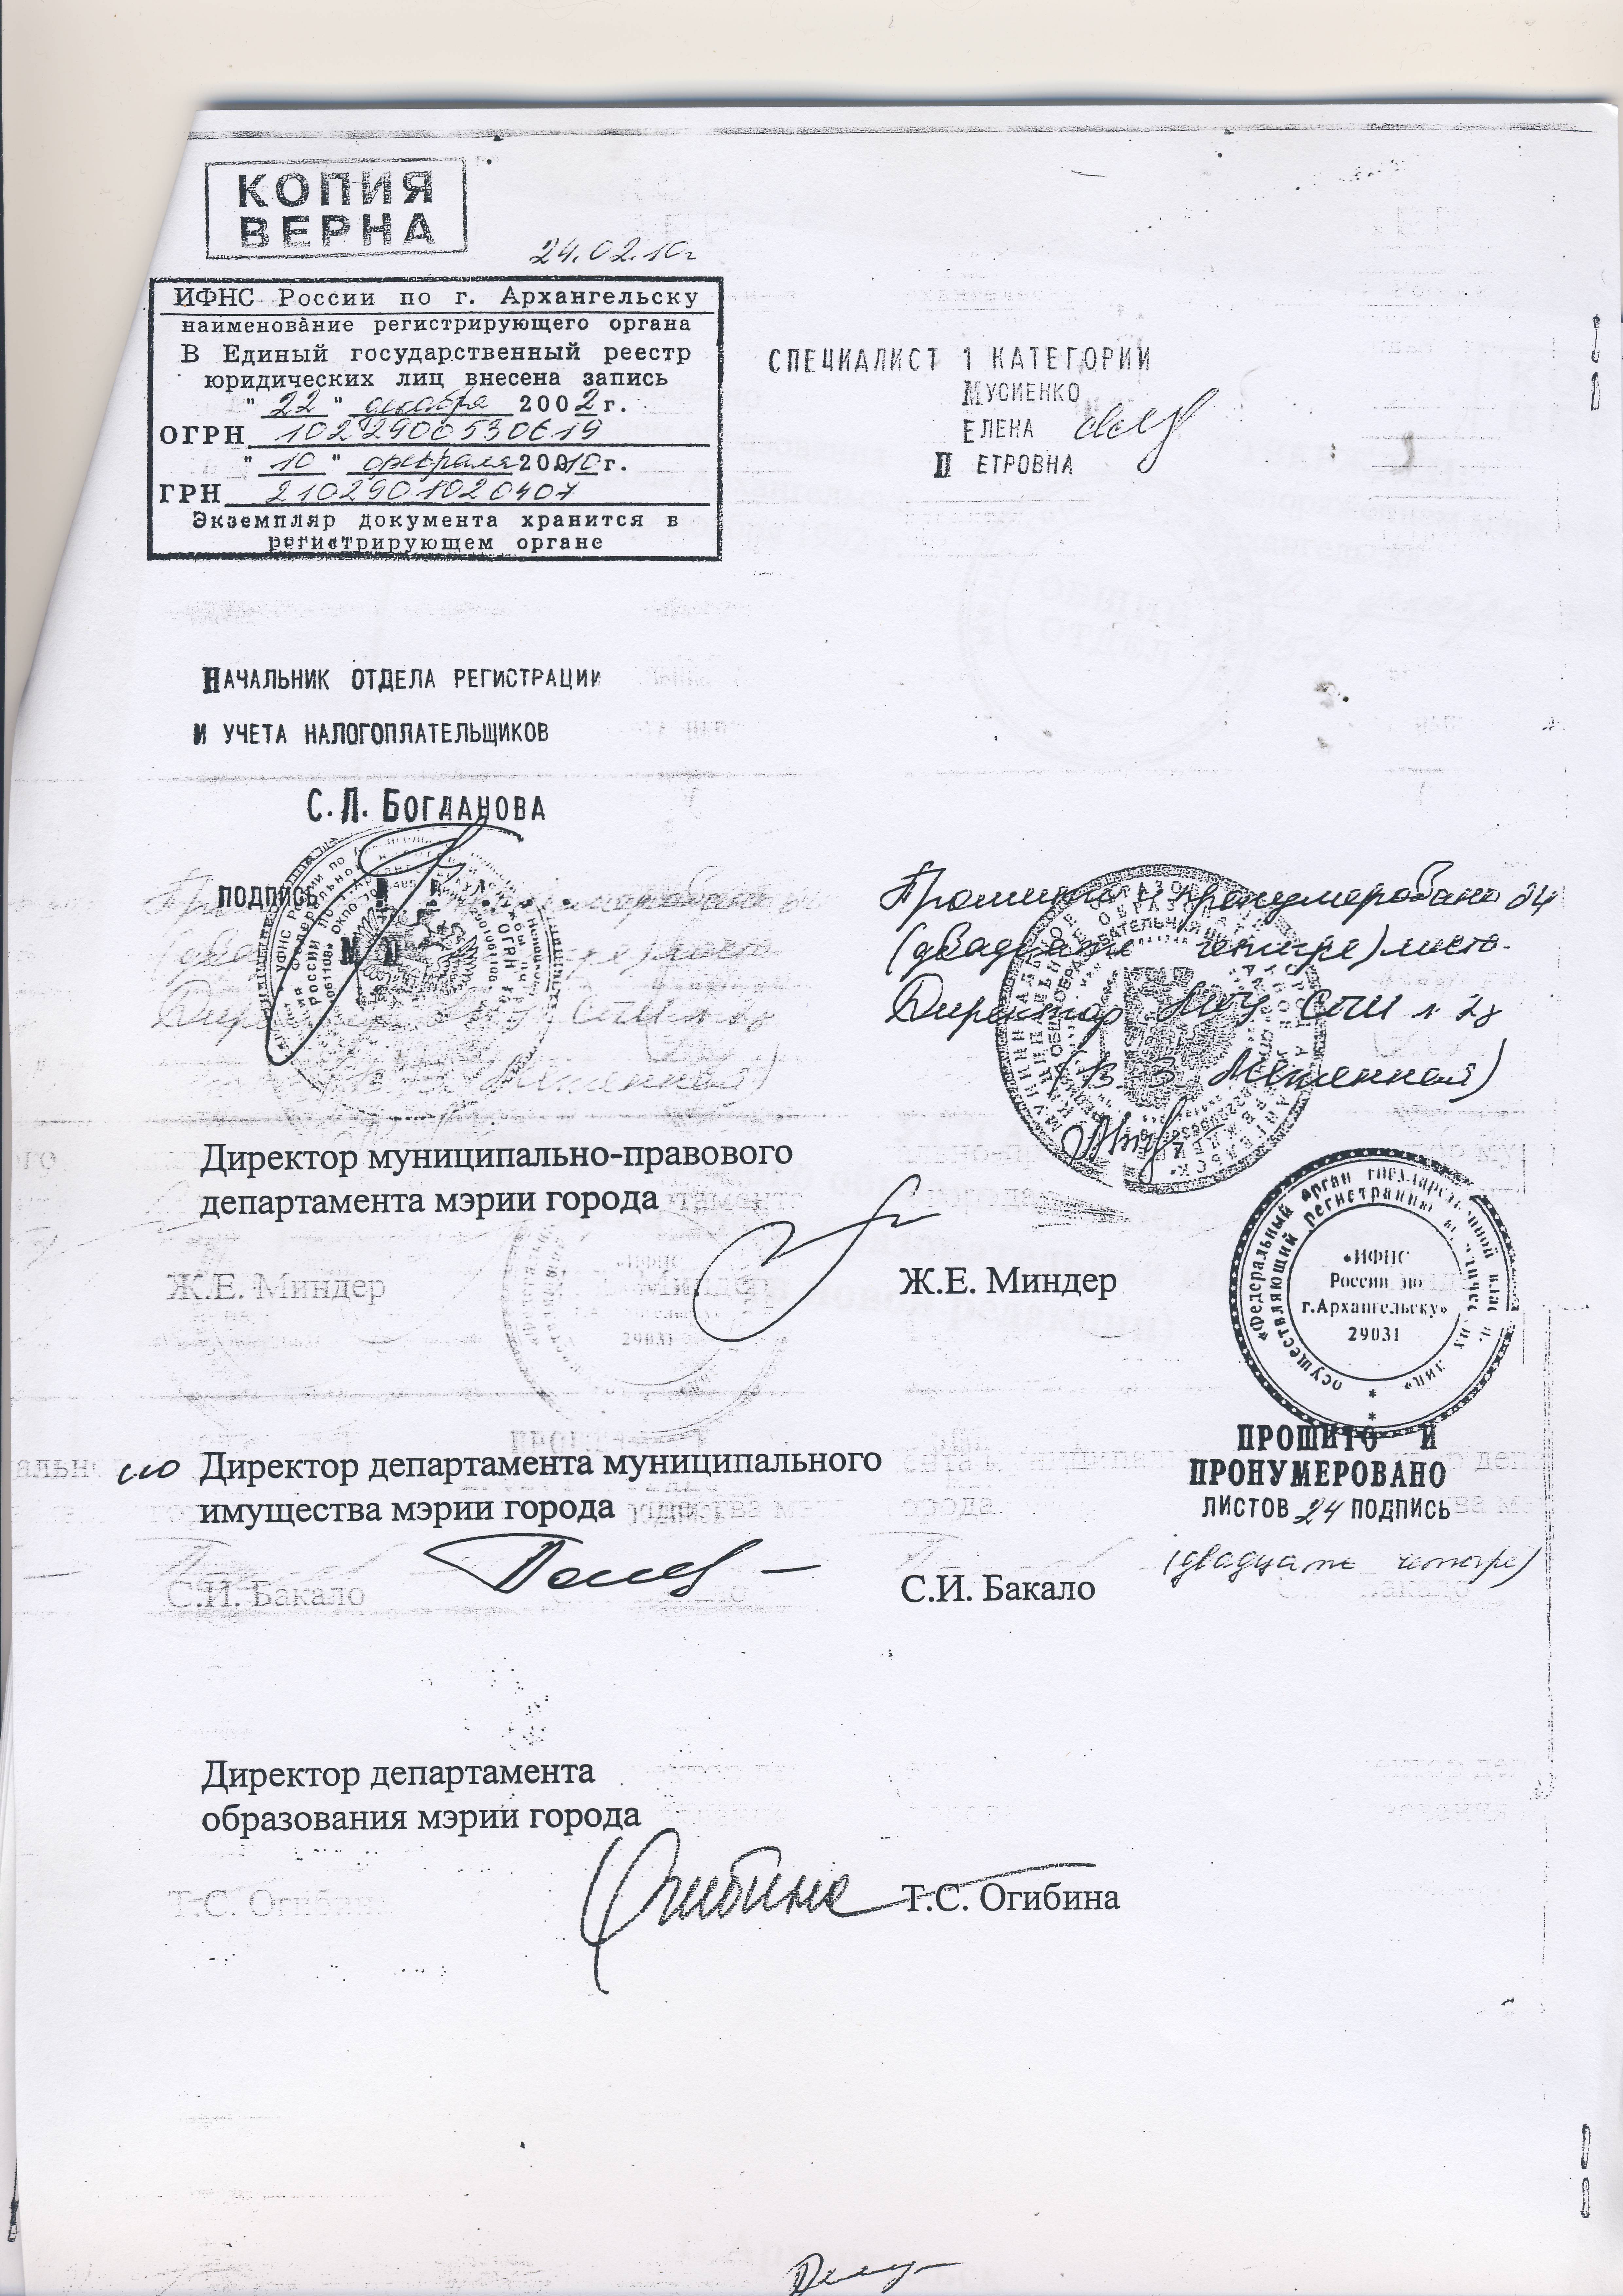 КОПИЯ
ВЕРНА
24.02.10г
ИФНС России по г. Архангельску
наименование регистрирующего органа
В Единый государственный реестр
юридических лиц внесена запись
"22" декабря 2002г.
ОГРН 1022900530619
"10" февраля 2010г.
ГРН 2102901020407
Экземпляр документа хранится в
регистрирующем органе
СПЕЦИАЛИСТ 1 КАТЕГОРИИ
МУСИЕНКО
ЕЛЕНА
ПЕТРОВНА
НАЧАЛЬНИК ОТДЕЛА РЕГИСТРАЦИИ
И УЧЕТА НАЛОГОПЛАТЕЛЬЩИКОВ
С.Л. БОГДАНОВА
ПОДПИСЬ
М П
Прошито и пронумеровано 24
(двадцать четыре) листа.
Директор МОУ СОШ № 28
Директор муниципально-правового
департамента мэрии города
Ж.Е. Миндер
«Федеральный орган государственной власти,
осуществляющий регистрацию юридических лиц»
«ИФНС
России по
г.Архангельску»
29031
ио Директор департамента муниципального
имущества мэрии города
С.И. Бакало
ПРОШИТО И
ПРОНУМЕРОВАНО
ЛИСТОВ 24 ПОДПИСЬ
(двадцать четыре)
Директор департамента
образования мэрии города
Огибина Т.С. Огибина